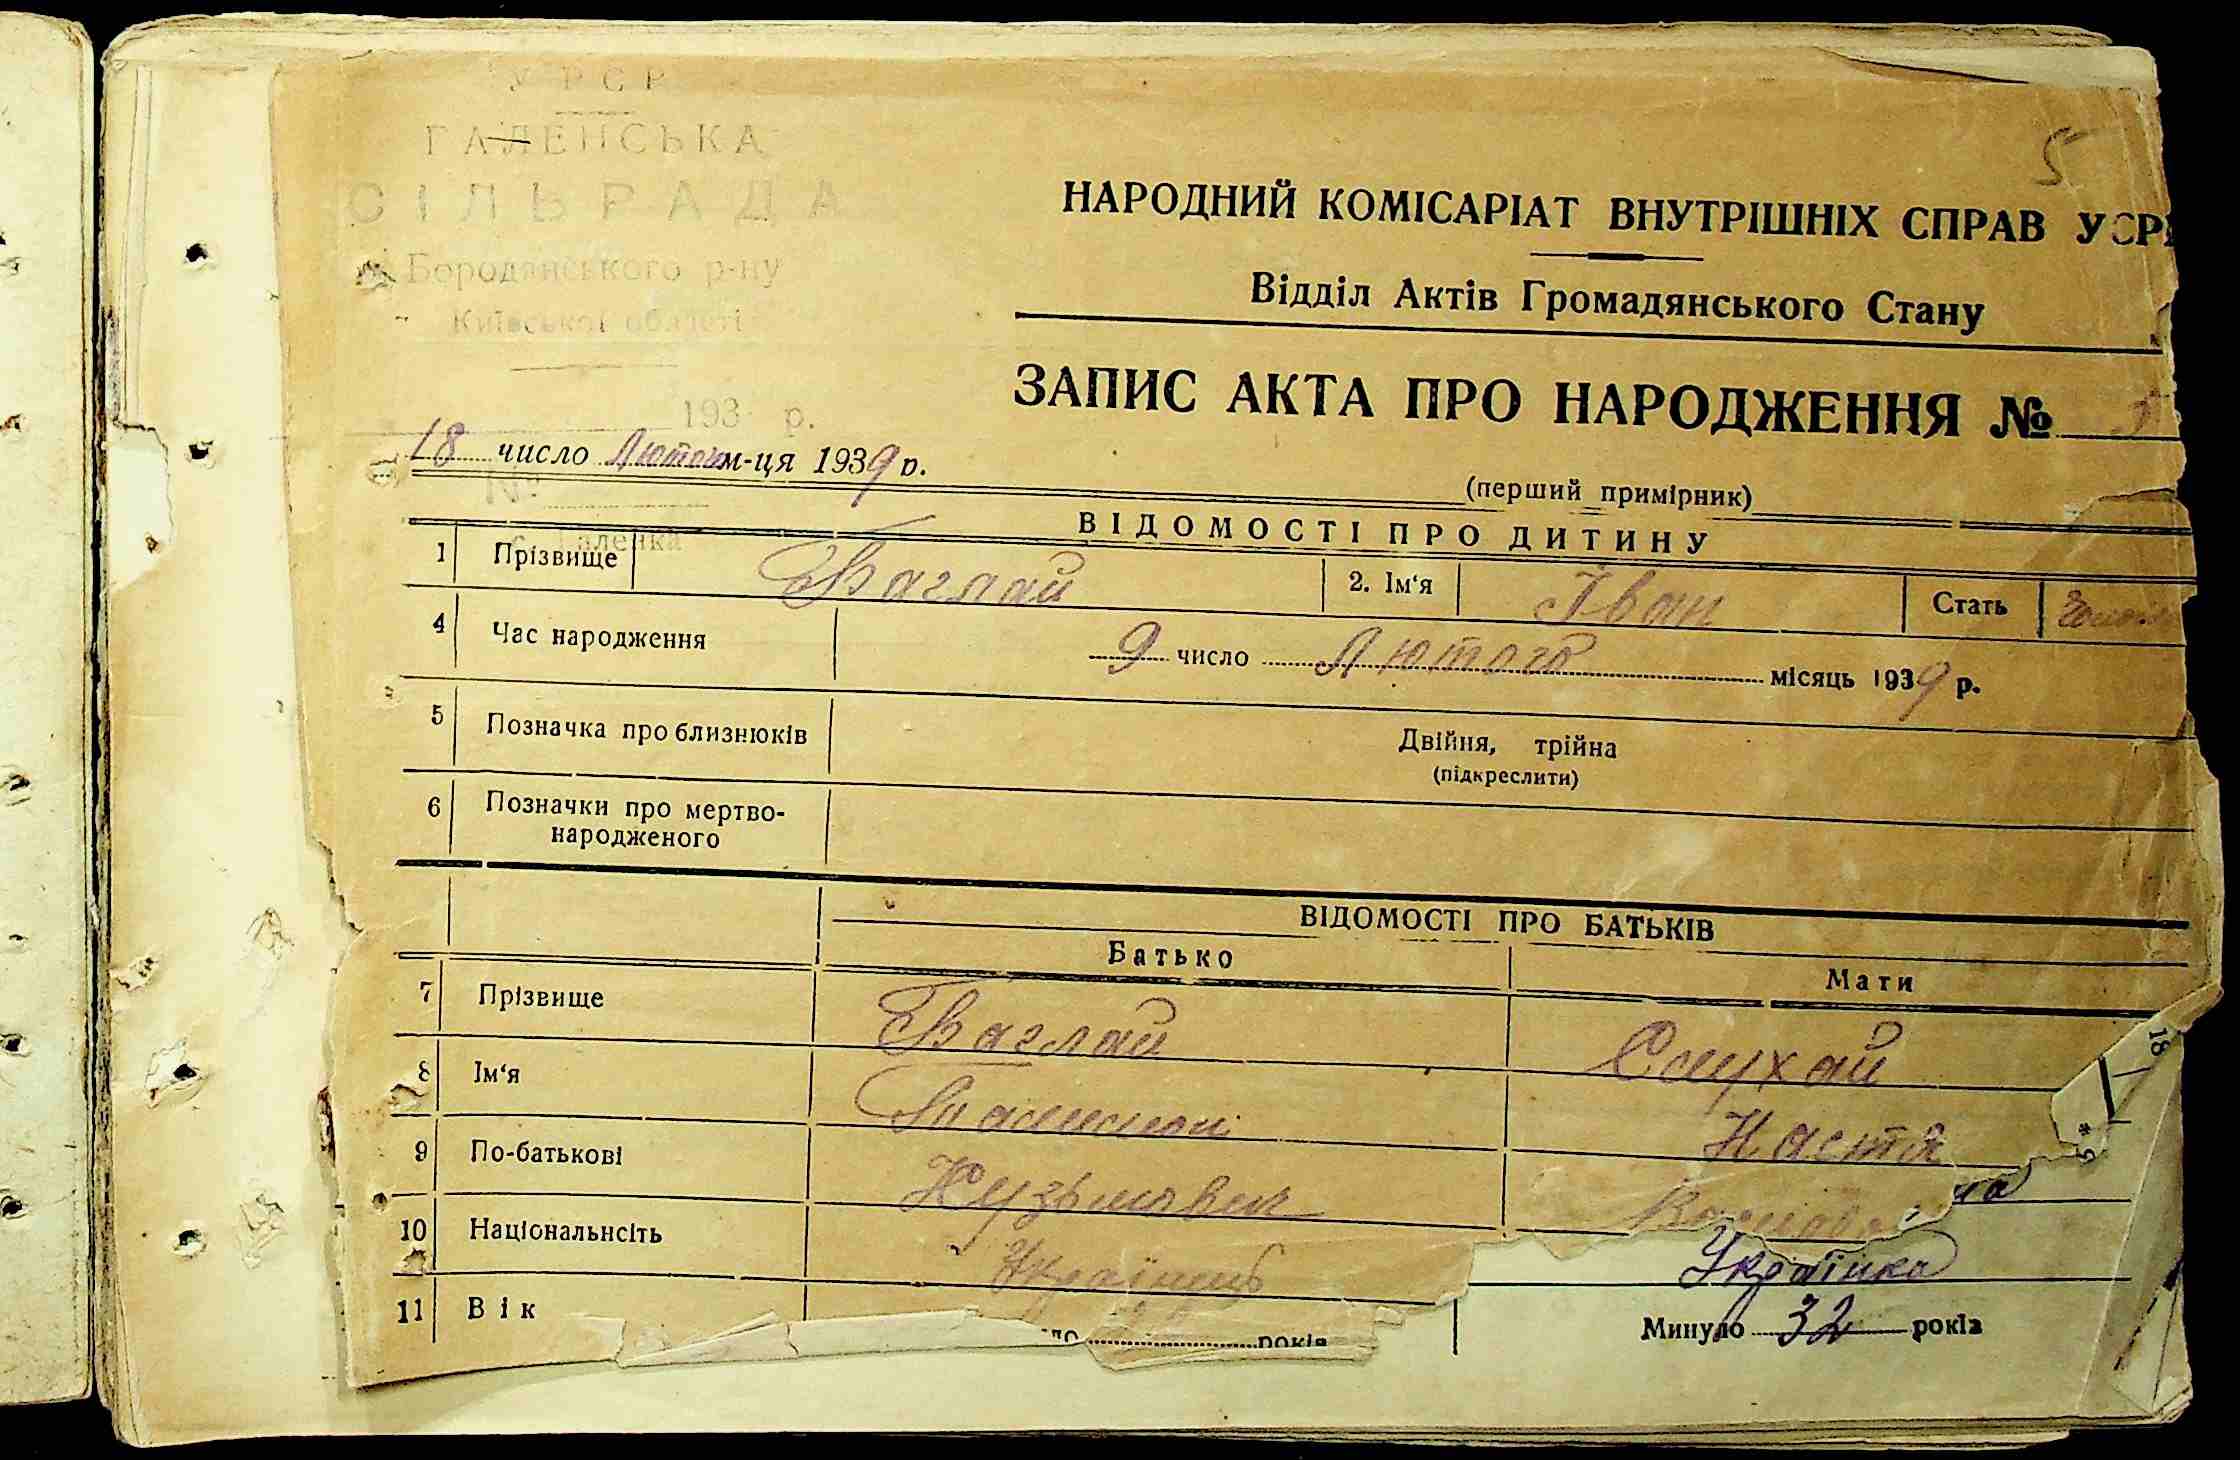 У Р С Р
ГАЛЕНСЬКА
СІЛЬРАДА
Бородянського р-ну
Київської області
193 р.
№
с. Галенка
5
НАРОДНИЙ КОМІСАРІАТ ВНУТРІШНІХ СПРАВ УСРР
Відділ Актів Громадянського Стану
ЗАПИС АКТА ПРО НАРОДЖЕННЯ №
18 число Лютого м-ця 1939 р.
(перший примірник)
ВІДОМОСТІ ПРО ДИТИНУ
1 Прізвище Баглай 2. Ім'я Іван Стать
4 Час народження 9 число Лютого місяць 1939 р.
5 Позначка про близнюків Двійня, трійна
(підкреслити)
6 Позначки про мертво-
народженого
ВІДОМОСТІ ПРО БАТЬКІВ
Батько Мати
7 Прізвище Баглай Слухай
8 Ім'я Настя
9 По-батькові Кузьмович
10 Національнсіть Українець Українка
11 Вік років Минуло 32 років
18